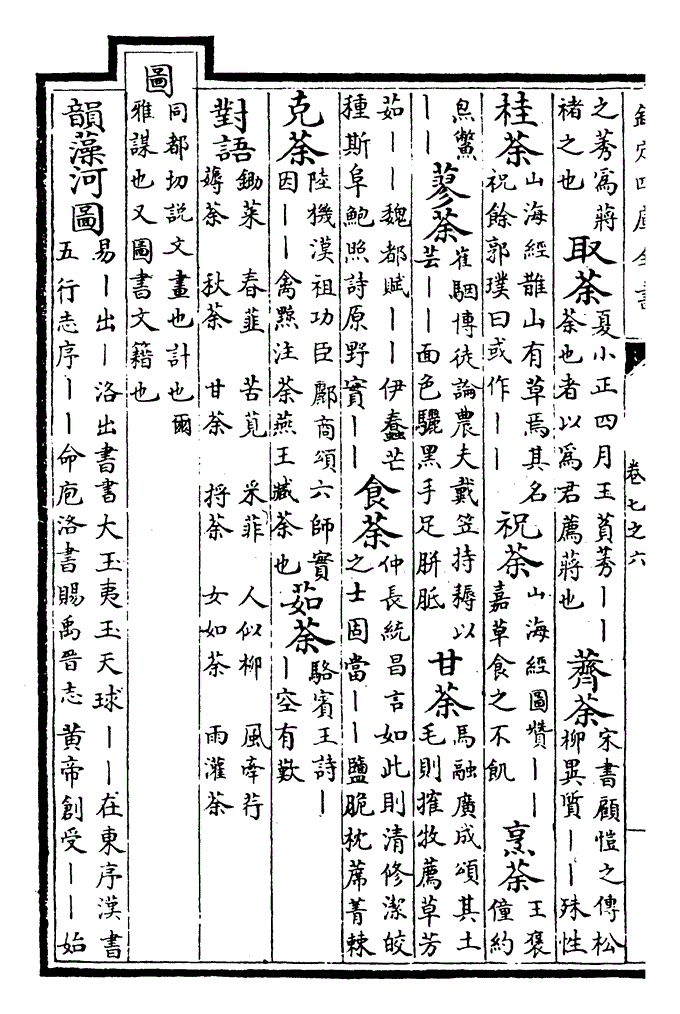 欽定四庫全書
卷七之六
之莠爲蔣
褚之也
取荼
夏小正四月王萯莠丨丨
荼也者以爲君薦蔣也
薺荼
宋書顧愷之傳松
柳異質丨丨殊性
桂荼
山海經䧿山有草焉其名
祝餘郭璞曰或作丨丨
祝荼
山海經圖讚丨丨
嘉草食之不飢
烹荼
王褒
僮約
炰鱉
丨丨
蓼荼
崔駰博徒論農夫戴笠持耨以
芸丨丨面色驪黑手足胼胝
甘荼
馬融廣成頌其土
毛則搉牧薦草芳
茹丨丨魏都賦丨丨伊蠢芒
種斯阜鮑照詩原野實丨丨
食荼
仲長統昌言如此則清修潔皎
之士固當丨丨鹽脆枕蓆菁棘
克荼
陸機漢祖功臣酈商頌六師實
因丨丨禽黥注荼燕王臧荼也
茹荼
駱賓王詩丨
丨空有歎
對語
鋤菜 春韮 苦莧 采菲 人似柳 風牽荇
薅荼 秋荼 甘荼 捋荼 女如荼 雨灌荼
圖
同都切說文畫也計也爾
雅謀也又圖書文籍也
韻藻河圖
易丨出丨洛出書書大玉夷玉天球丨丨在東序漢書
五行志序丨丨命庖洛書賜禹晉志黄帝創受丨丨始